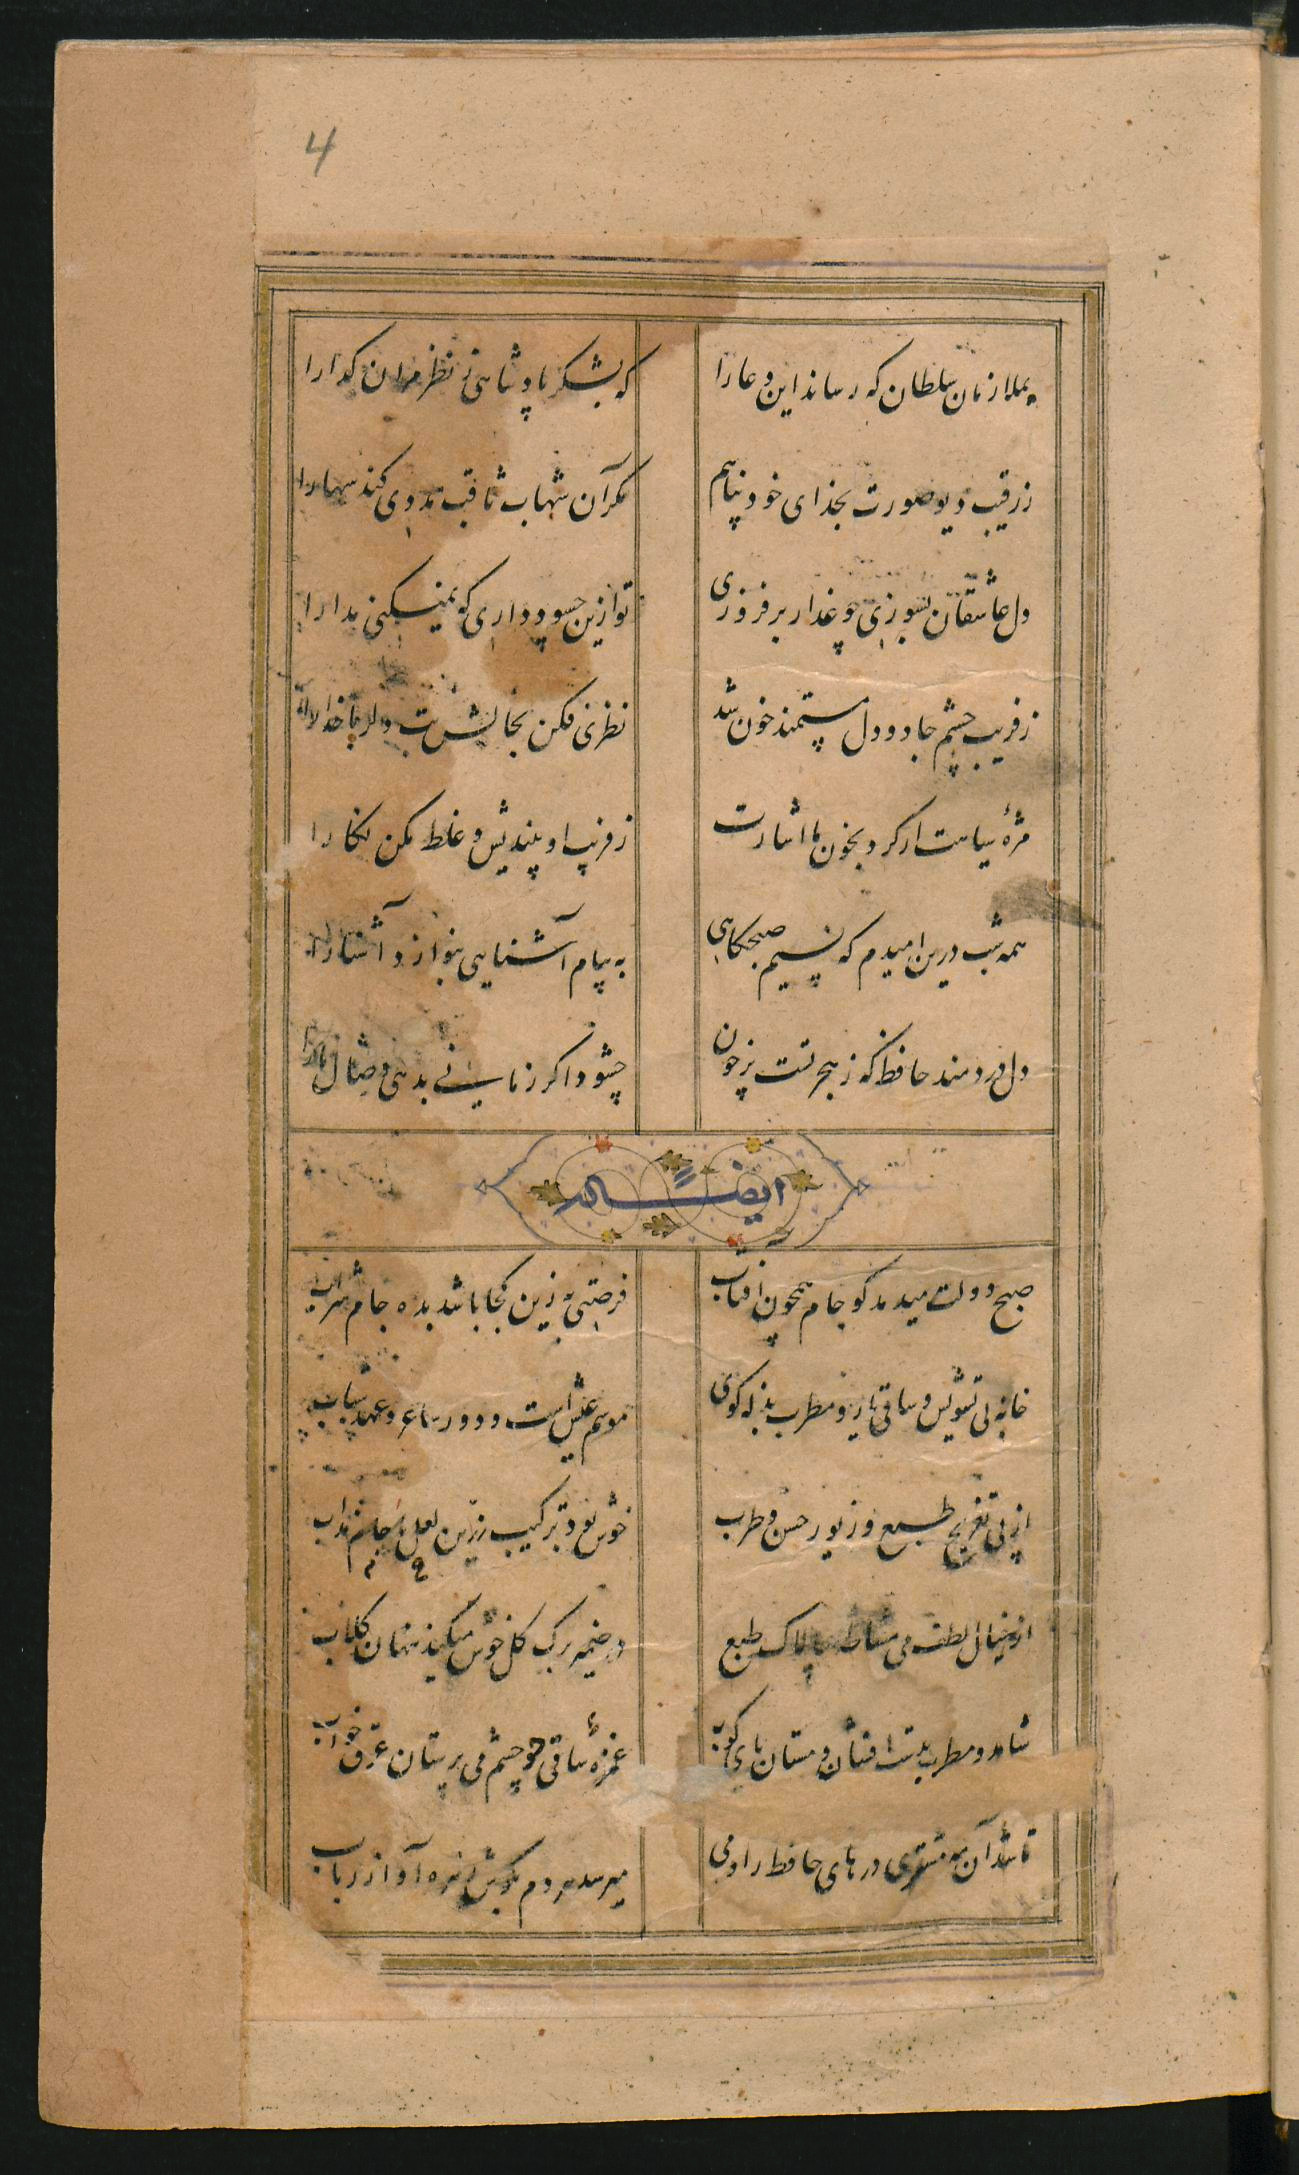 4
بملازمان سلطان که رساند این دعا را
که بشکر پادشاهی ز نظر مران گدا را
ز رقیب دیو صورت بخدای خود پناهم
مگر آن شهاب ثاقب مددی کند سها را
دل عاشقان بسوزی چو عذار بر فروزی
تو ازین چه سود داری که نمیکنی مدارا
ز فریب چشم جادو دل مستمند خون شد
نظری فکن بحالش بت دلربا خدا را
مژهٔ سیاهت ار کرد بخون ما اشارت
ز فریب او بیندیش و غلط مکن نگارا
همه شب درین امیدم که نسیم صبحگاهی
به پیام آشنایی بنوازد آشنا را
دل دردمند حافظ که ز هجر تست پر خون
چشود اگر زمانی بدهی وصال ما را
ایضاً له
صبح دولت میدمد کو جام همچون آفتاب
فرصتی به زین کجا باشد بده جام شراب
خانه بی تشویش و ساقی یار و مطرب بذله کوی
موسم عیش است و دور ساغر و عهد شباب
از پی تفریح طبع و زیور حسن و طرب
خوش بود ترکیب زرین جام با لعل مذاب
از خیال لطف می مشاطه چالاک طبع
در ضمیر برک کل خوش میکند پنهان کلاب
شاهد و مطرب بدست افشان و مستان پای کوب
غمزهٔ ساقی چو چشم می پرستان غرق خواب
تا شد آن مه مشتری درهای حافظ را دمی
میرسد هر دم بکوش زهره آواز رباب